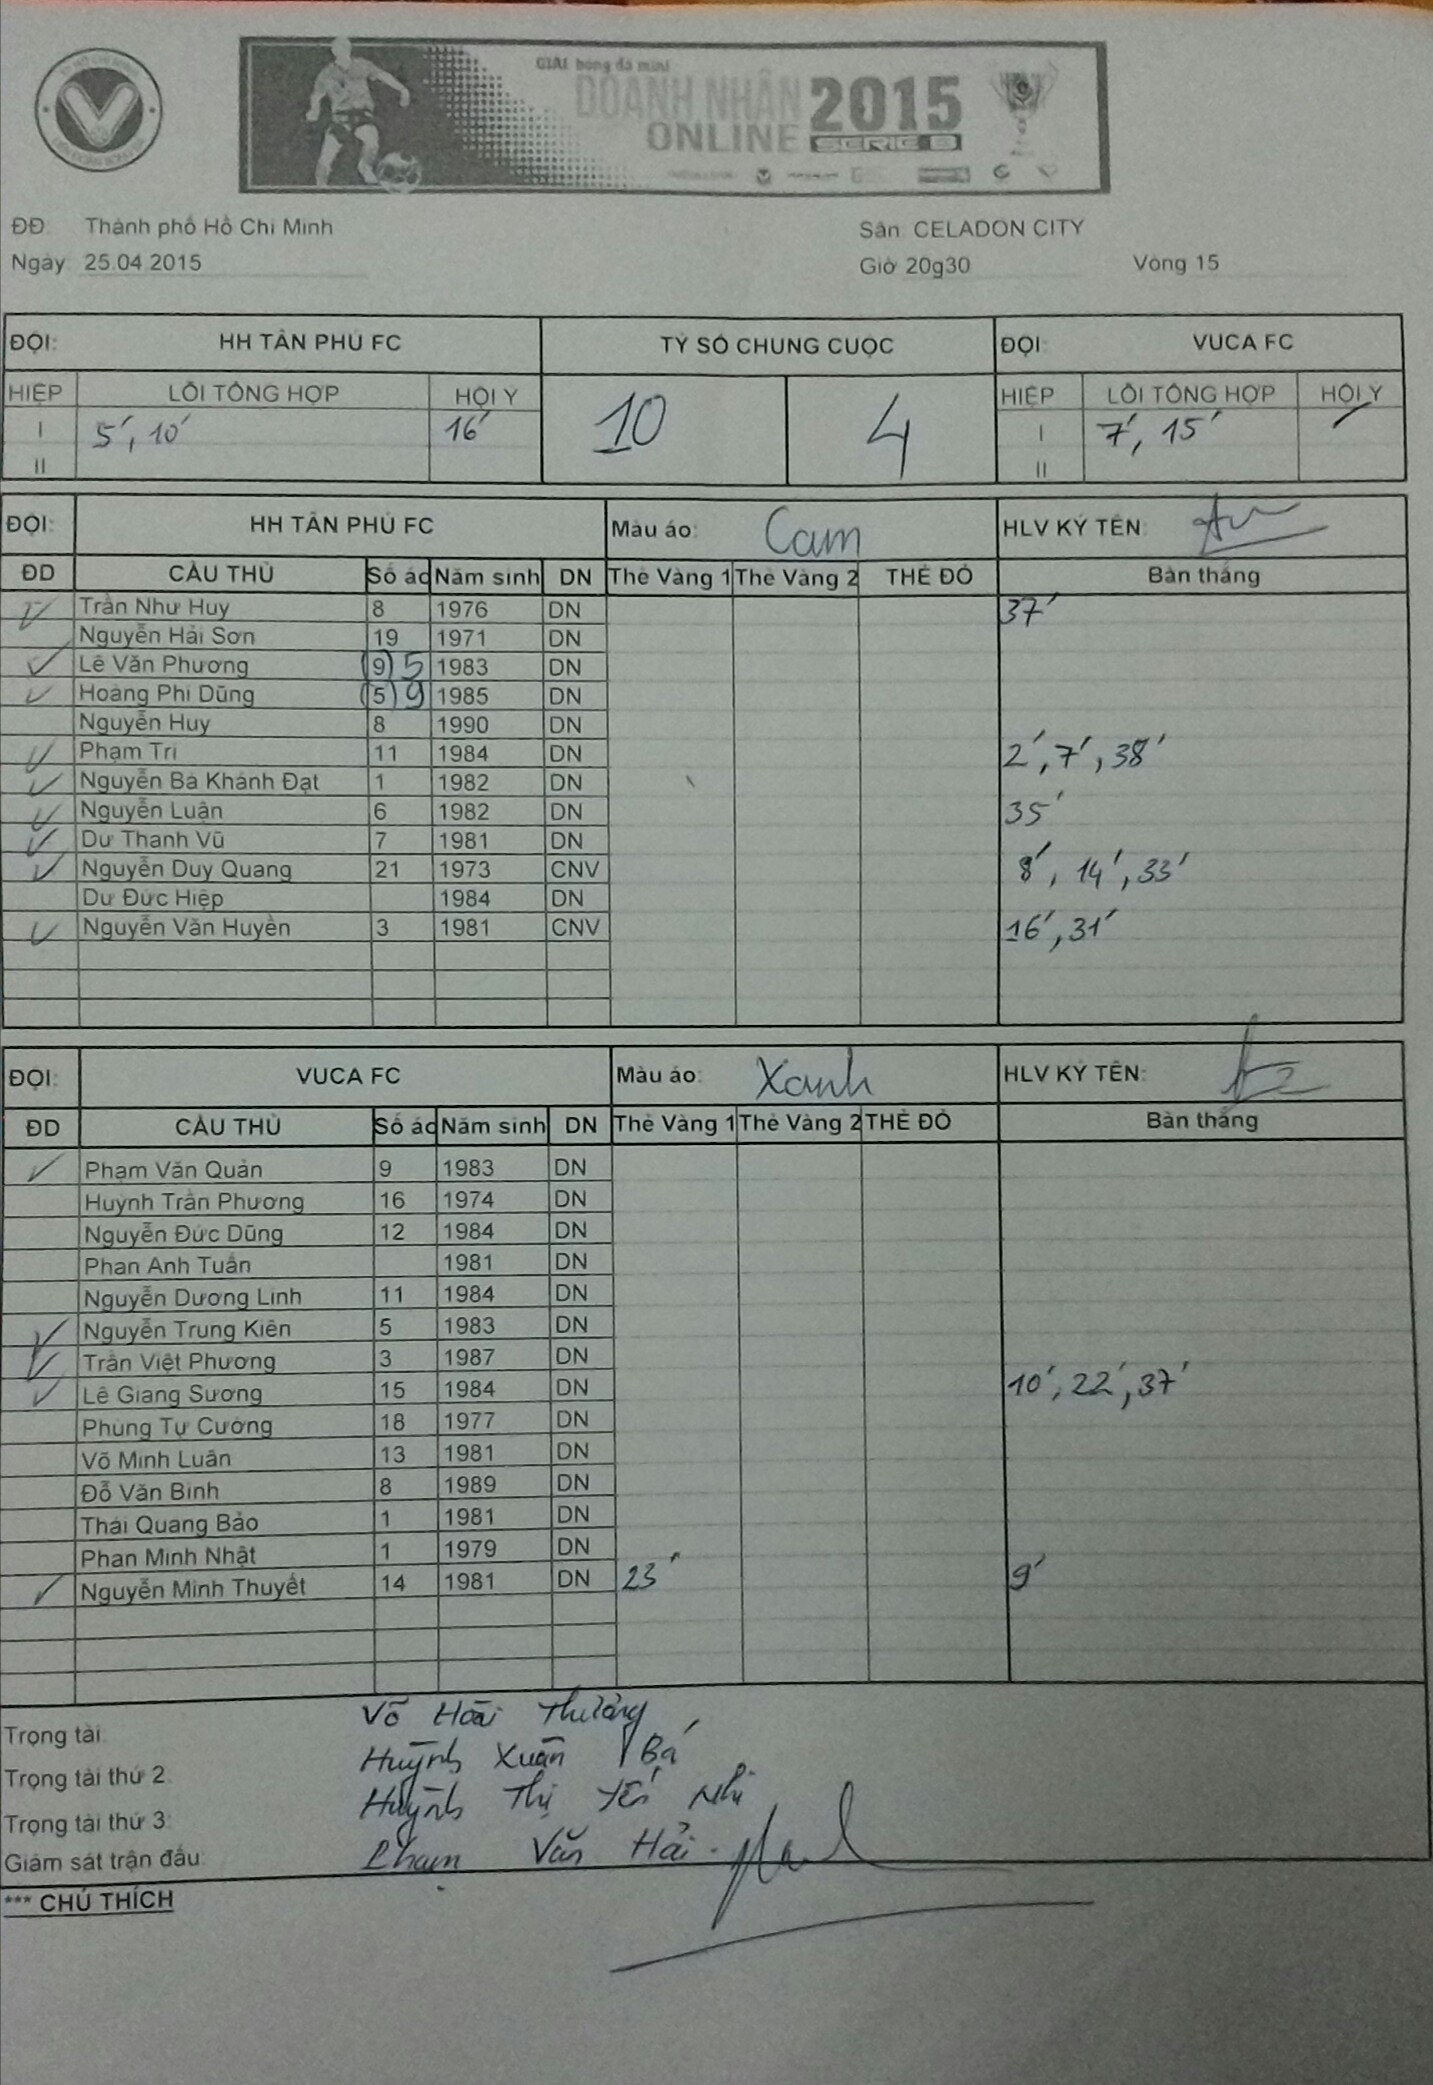 GIẢI bóng đá mini
DOANH NHÂN 2015
ONLINE SERIE B
ĐĐ: Thành phố Hồ Chí Minh Sân: CELADON CITY
Ngày 25.04.2015 Giờ 20g30 Vòng 15
ĐỘI: HH TÂN PHÚ FC TỶ SỐ CHUNG CUỘC ĐỘI: VUCA FC
HIỆP LỖI TỔNG HỢP HỘI Ý 10 4 HIỆP LỖI TỔNG HỢP HỘI Ý
I 5', 10' 16' I 7', 15'
II II
ĐỘI: HH TÂN PHÚ FC Màu áo: Cam HLV KÝ TÊN:
ĐD CẦU THỦ Số áo Năm sinh DN Thẻ Vàng 1 Thẻ Vàng 2 THẺ ĐỎ Bàn thắng
Trần Như Huy 8 1976 DN 37'
Nguyễn Hải Sơn 19 1971 DN
Lê Văn Phương (9) 5 1983 DN
Hoàng Phi Dũng (5) 9 1985 DN
Nguyễn Huy 8 1990 DN
Phạm Trí 11 1984 DN 2', 7', 38'
Nguyễn Bá Khánh Đạt 1 1982 DN
Nguyễn Luận 6 1982 DN 35'
Dư Thanh Vũ 7 1981 DN
Nguyễn Duy Quang 21 1973 CNV 8', 14', 33'
Dư Đức Hiệp 1984 DN
Nguyễn Văn Huyền 3 1981 CNV 16', 31'
ĐỘI: VUCA FC Màu áo: Xanh HLV KÝ TÊN:
ĐD CẦU THỦ Số áo Năm sinh DN Thẻ Vàng 1 Thẻ Vàng 2 THẺ ĐỎ Bàn thắng
Phạm Văn Quản 9 1983 DN
Huỳnh Trần Phương 16 1974 DN
Nguyễn Đức Dũng 12 1984 DN
Phan Anh Tuấn 1981 DN
Nguyễn Dương Linh 11 1984 DN
Nguyễn Trung Kiên 5 1983 DN
Trần Việt Phương 3 1987 DN
Lê Giang Sương 15 1984 DN 10', 22', 37'
Phùng Tự Cường 18 1977 DN
Võ Minh Luân 13 1981 DN
Đỗ Văn Bình 8 1989 DN
Thái Quang Bảo 1 1981 DN
Phan Minh Nhật 1 1979 DN
Nguyễn Minh Thuyết 14 1981 DN 23' 9'
Trọng tài: Võ Hoài Thương
Trọng tài thứ 2: Huỳnh Xuân Bá
Trọng tài thứ 3: Huỳnh Thị Yến Nhi
Giám sát trận đấu: Phạm Văn Hải
*** CHÚ THÍCH